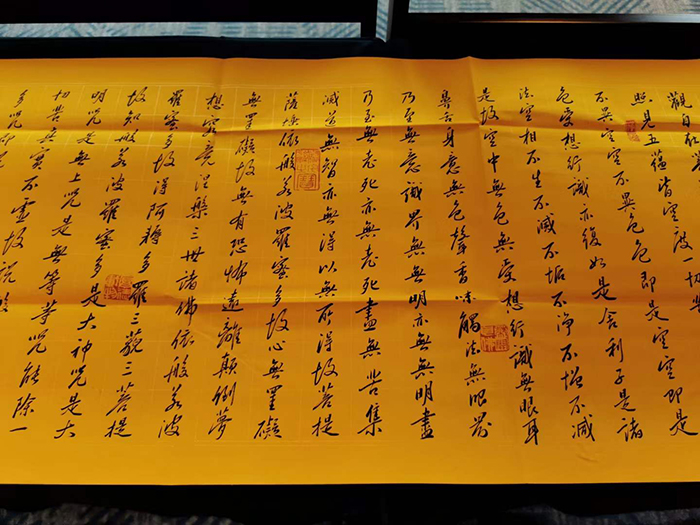 觀自在
照見五蘊皆空度一切苦
不異空空不異色色即是空空即是
色受想行識亦復如是舍利子是諸
法空相不生不滅不垢不淨不增不減
是故空中無色無受想行識無眼耳
鼻舌身意無色聲香味觸法無眼界
乃至無意識界無無明亦無無明盡
乃至無老死亦無老死盡無苦集
滅道無智亦無得以無所得故菩提
薩埵依般若波羅蜜多故心無罣礙
無罣礙故無有恐怖遠離顛倒夢
想究竟涅槃三世諸佛依般若波
羅蜜多故得阿耨多羅三藐三菩提
故知般若波羅蜜多是大神咒是大
明咒是無上咒是無等等咒能除一
切苦真實不虛故說般
多咒即